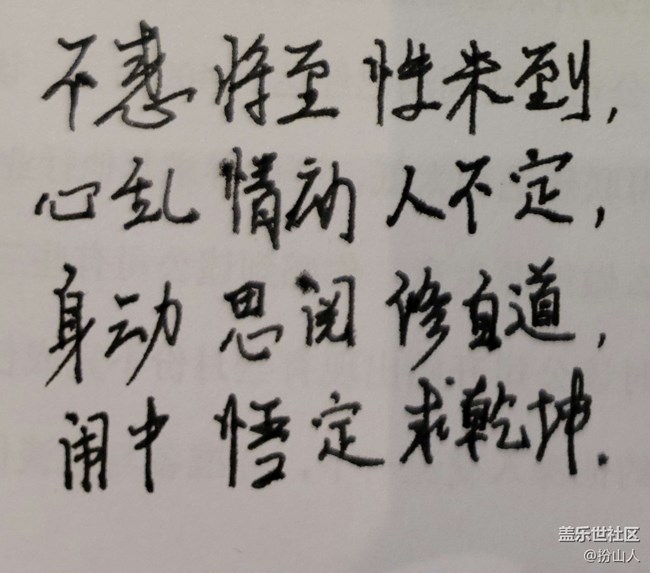 不惑将至性未到,
心乱情动人不定,
身动思阅修自道,
闹中悟定求乾坤.
盖乐世社区
@扮山人